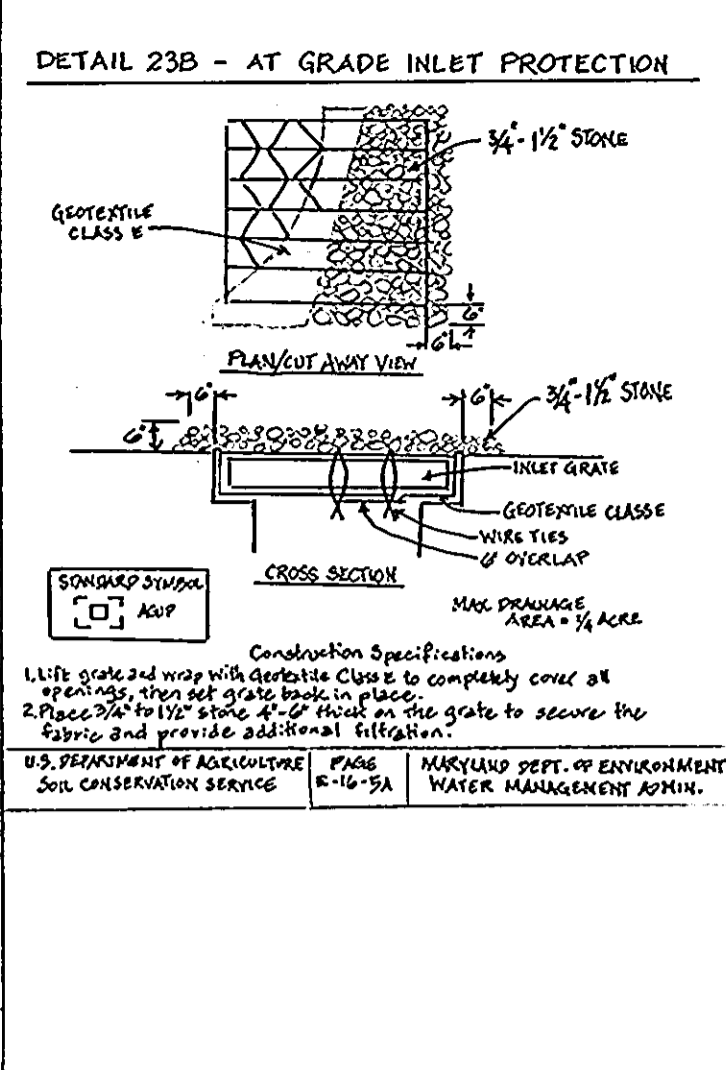 DETAIL 23B - AT GRADE INLET PROTECTION
3/4" - 1 1/2" STONE
GEOTEXTILE
CLASS E
6"
6"
PLAN/CUT AWAY VIEW
6"
6"
3/4" - 1 1/2" STONE
6"
INLET GRATE
GEOTEXTILE CLASS E
WIRE TIES
6" OVERLAP
CROSS SECTION
STANDARD SYMBOL
AGIP
MAX. DRAINAGE
AREA = 1/4 ACRE
Construction Specifications
1. Lift grate and wrap with Geotextile Class E to completely cover all
openings, then set grate back in place.
2. Place 3/4" to 1 1/2" stone 4"-6" thick on the grate to secure the
fabric and provide additional filtration.
U.S. DEPARTMENT OF AGRICULTURE
SOIL CONSERVATION SERVICE
PAGE
E-16-5A
MARYLAND DEPT. OF ENVIRONMENT
WATER MANAGEMENT ADMIN.